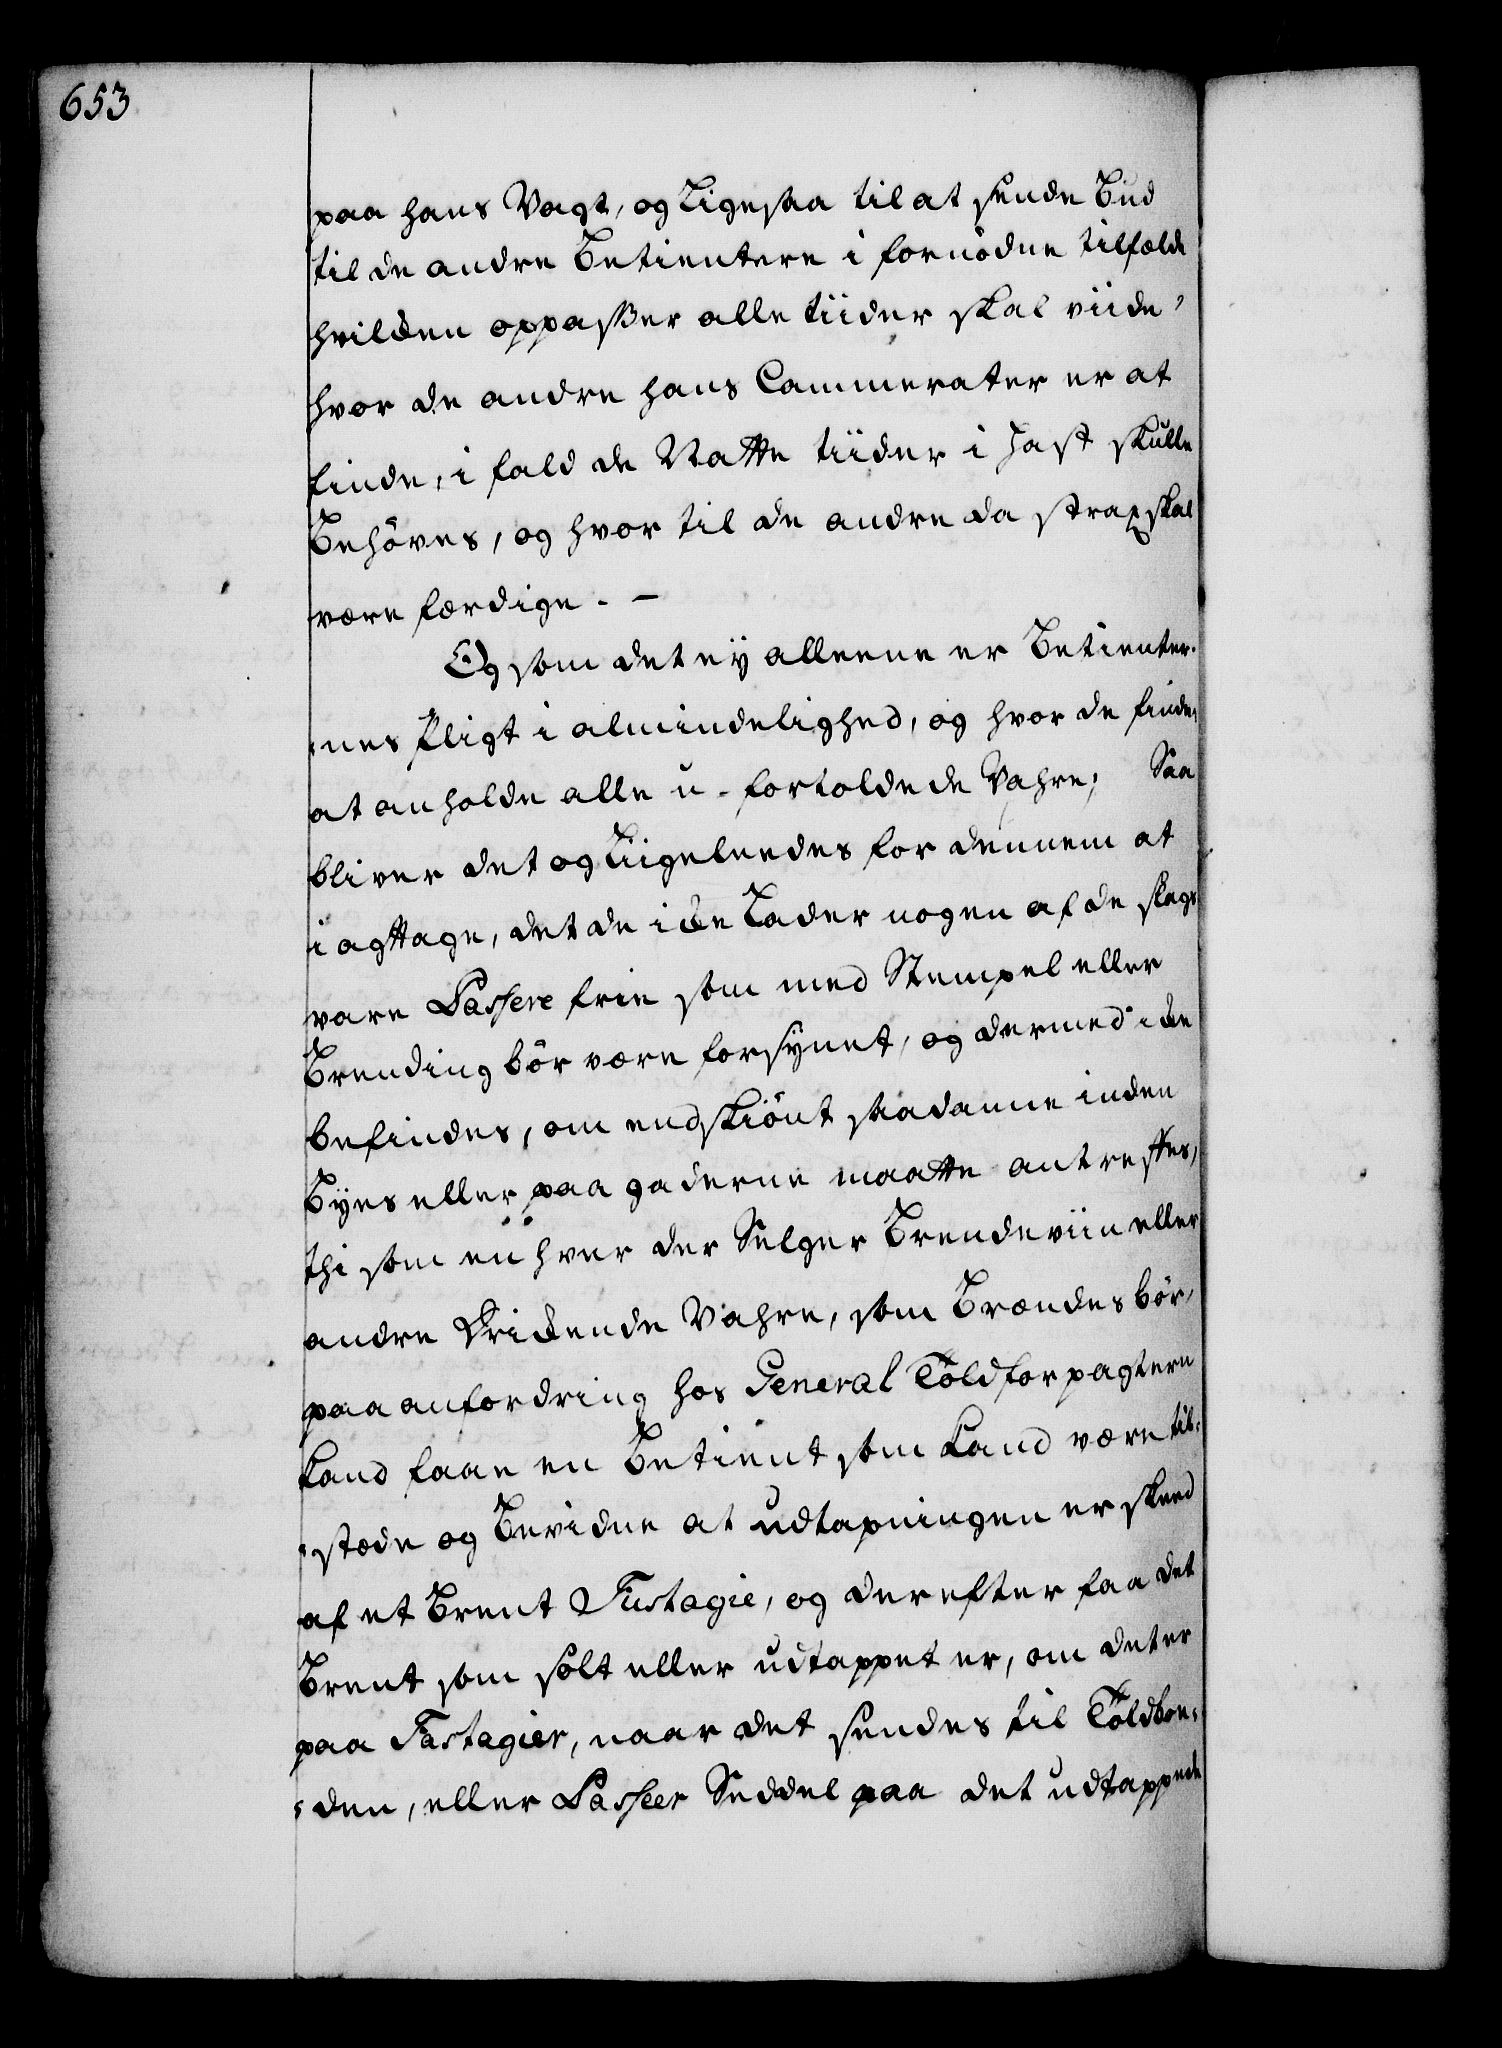 653
paa hans Vagt, og Ligesaa til at sende Bud
til de andre Betientere i fornödne tilfælde
hvilcken oppasser alle tiider skal viide,
hvor de andre hans Cammerater er at
finde, i fald de Natte tiider i Hast skulle
Behöves, og hvor til de andre da strax skal
være færdige. —
Og som det ey alleene er Betienter-
nes Pligt i almindelighed, og hvor de finde,
at anholde alle u-fortoldede Vahre; Saa
bliver det og Liigeleedes for dennem at
i agttage, det de icke Lader nogen af de slags
vare Passere frie som med Stempel eller
Brending bör være forsÿnet, og dermed icke
befindes, om endskiönt saadanne inden
Byes eller paa gaderne maatte antreffes,
thi som en hver der Selger Brendeviin eller
andre Drickende Vahre, som Brændes bör,
paa anfordring hos General Toldforpagtere
Kand faae en Betient som Kand være til-
stæde og Bevidne at udtapningen er skeed
af et Brent Fustagie, og derefter faa det
Brent som solt eller udtappet er, om det er
paa Fastagier, naar det sendes til Toldboe-
den, eller Passeer Seddel paa det udtappede